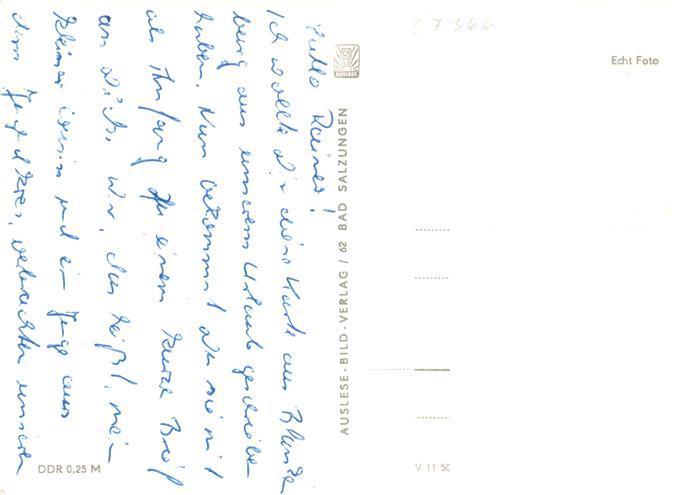 Hallo Reiner!
Ich wollte Dir diese Karte aus Blanken
burg aus unserem Urlaub geschrieben
haben. Nun bekommst du sie mit
als Anfang zu einem kurzen Brief
an Dich. Wir, das heißt, mein
kleiner Cousin und ein Junge aus
dem verbrachten unseren
DDR 0,25 M
AUSLESE
AUSLESE-BILD-VERLAG / 62 BAD SALZUNGEN
C 7366
Echt Foto
V 11 50